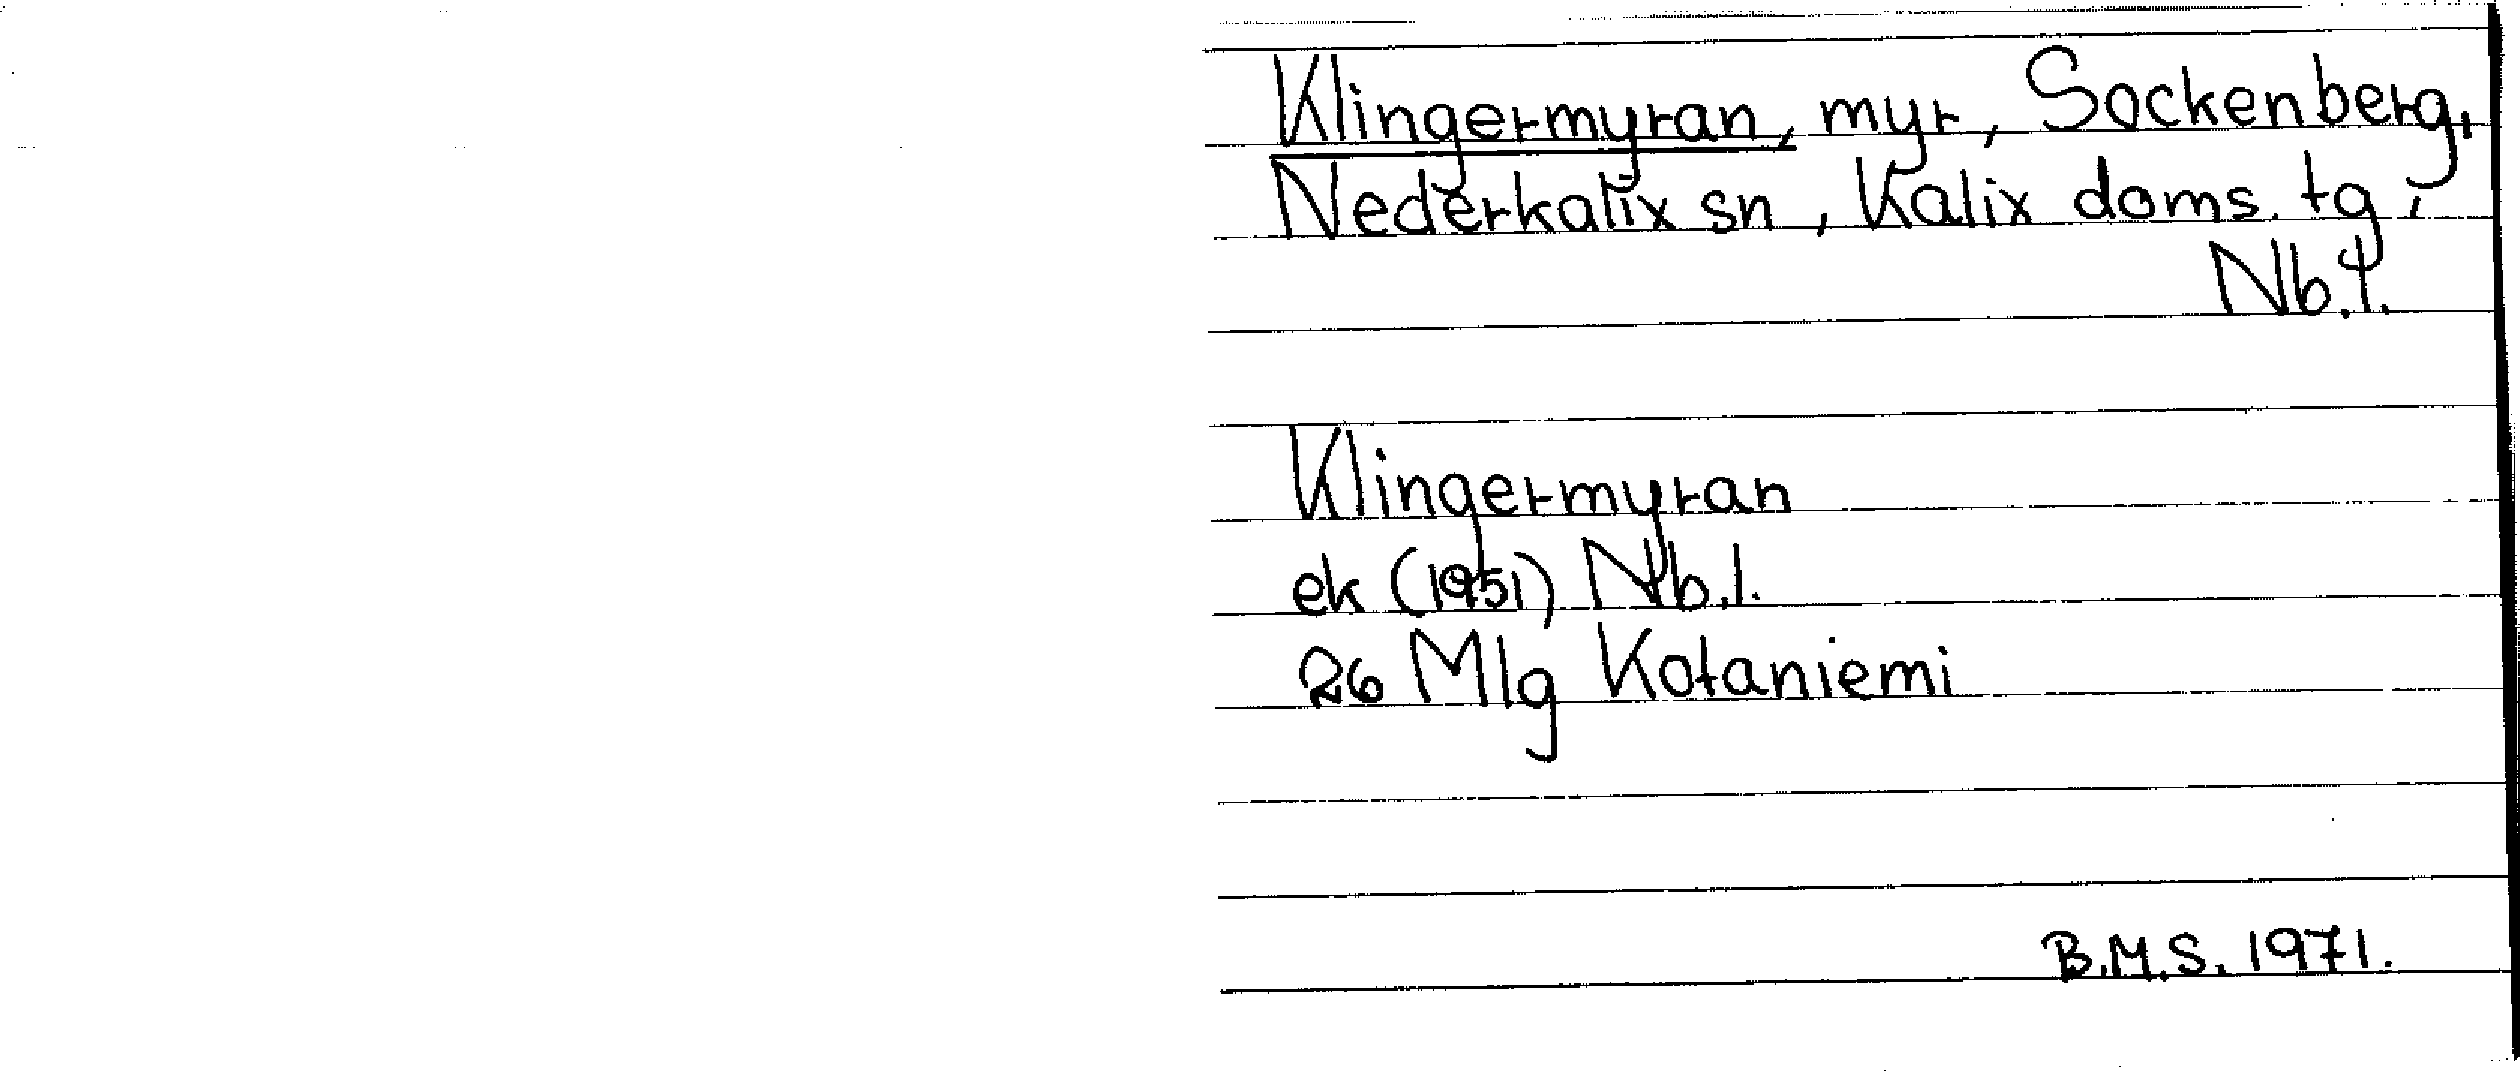 Klingermyran, myr, Sockenberg,
Nederkalix sn, Kalix doms. tg,
Nb. l.
Klingermyran
ek (1951) Nb. l.
26 Mlg Kotaniemi
B.M.S. 1971.